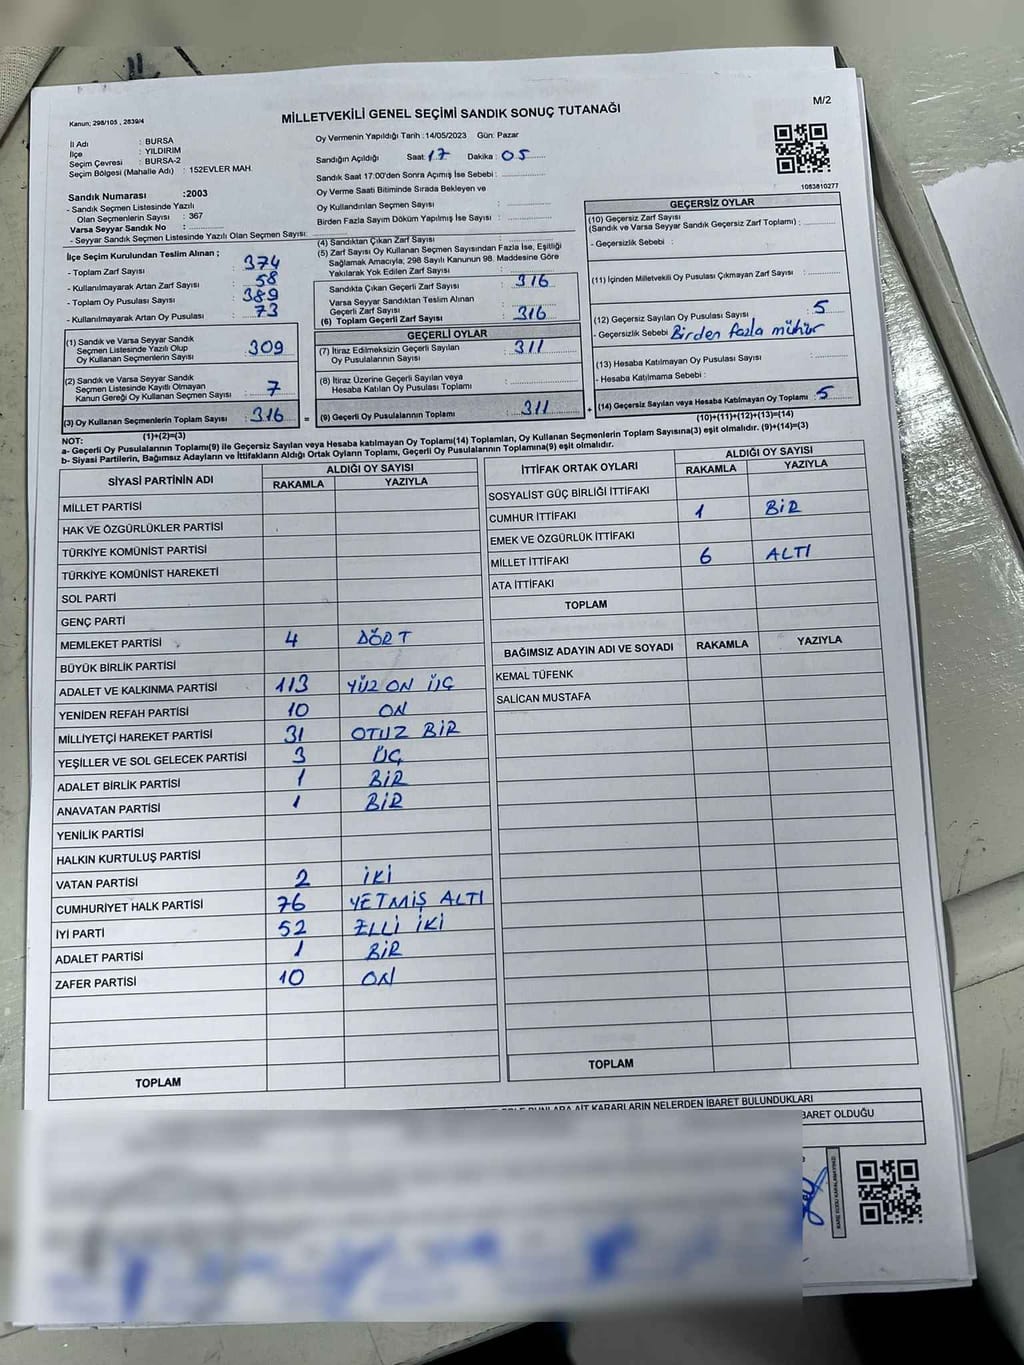 M/2
MİLLETVEKİLİ GENEL SEÇİMİ SANDIK SONUÇ TUTANAĞI
Kanun; 298/105 , 2839/4
İl Adı : BURSA
İlçe : YILDIRIM
Seçim Çevresi : BURSA-2
Seçim Bölgesi (Mahalle Adı) : 152EVLER MAH.
Oy Vermenin Yapıldığı Tarih :14/05/2023 Gün: Pazar
Sandığın Açıldığı Saat: 17 Dakika : 05
Sandık Saat 17:00'den Sonra Açımış İse Sebebi :
Oy Verme Saati Bitiminde Sırada Bekleyen ve
Oy Kullandırılan Seçmen Sayısı :
Birden Fazla Sayım Döküm Yapılmış İse Sayısı :
1083810277
Sandık Numarası :2003
- Sandık Seçmen Listesinde Yazılı
Olan Seçmenlerin Sayısı : 367
Varsa Seyyar Sandık No :
- Seyyar Sandık Seçmen Listesinde Yazılı Olan Seçmen Sayısı:
İlçe Seçim Kurulundan Teslim Alınan ;
- Toplam Zarf Sayısı : 374
- Kullanılmayarak Artan Zarf Sayısı : 58
- Toplam Oy Pusulası Sayısı : 389
- Kullanılmayarak Artan Oy Pusulası : 73
(1) Sandık ve Varsa Seyyar Sandık
Seçmen Listesinde Yazılı Olup
Oy Kullanan Seçmenlerin Sayısı : 309
(2) Sandık ve Varsa Seyyar Sandık
Seçmen Listesinde Kayıtlı Olmayan
Kanun Gereği Oy Kullanan Seçmen Sayısı : 7
(3) Oy Kullanan Seçmenlerin Toplam Sayısı : 316
(1)+(2)=(3)
(4) Sandıktan Çıkan Zarf Sayısı :
(5) Zarf Sayısı Oy Kullanan Seçmen Sayısından Fazla İse, Eşitliği
Sağlamak Amacıyla; 298 Sayılı Kanunun 98. Maddesine Göre
Yakılarak Yok Edilen Zarf Sayısı :
Sandıkta Çıkan Geçerli Zarf Sayısı : 316
Varsa Seyyar Sandıktan Teslim Alınan
Geçerli Zarf Sayısı :
(6) Toplam Geçerli Zarf Sayısı : 316
GEÇERLİ OYLAR
(7) İtiraz Edilmeksizin Geçerli Sayılan
Oy Pusulalarının Sayısı : 311
(8) İtiraz Üzerine Geçerli Sayılan veya
Hesaba Katılan Oy Pusulası Toplamı :
= (9) Geçerli Oy Pusulalarının Toplamı : 311 +
GEÇERSİZ OYLAR
(10) Geçersiz Zarf Sayısı
(Sandık ve Varsa Seyyar Sandık Geçersiz Zarf Toplamı) :
- Geçersizlik Sebebi :
(11) İçinden Milletvekili Oy Pusulası Çıkmayan Zarf Sayısı :
(12) Geçersiz Sayılan Oy Pusulası Sayısı : 5
- Geçersizlik Sebebi : Birden fazla mühür
(13) Hesaba Katılmayan Oy Pusulası Sayısı :
- Hesaba Katılmama Sebebi :
(14) Geçersiz Sayılan veya Hesaba Katılmayan Oy Toplamı : 5
(10)+(11)+(12)+(13)=(14)
NOT:
a- Geçerli Oy Pusulalarının Toplamı(9) ile Geçersiz Sayılan veya Hesaba katılmayan Oy Toplamı(14) Toplamları, Oy Kullanan Seçmenlerin Toplam Sayısına(3) eşit olmalıdır. (9)+(14)=(3)
b- Siyasi Partilerin, Bağımsız Adayların ve İttifakların Aldığı Ortak Oyların Toplamı, Geçerli Oy Pusulalarının Toplamına(9) eşit olmalıdır.
SİYASİ PARTİNİN ADI ALDIĞI OY SAYISI
RAKAMLA YAZIYLA
MİLLET PARTİSİ
HAK VE ÖZGÜRLÜKLER PARTİSİ
TÜRKİYE KOMÜNİST PARTİSİ
TÜRKİYE KOMÜNİST HAREKETİ
SOL PARTİ
GENÇ PARTİ
MEMLEKET PARTİSİ 4 DÖRT
BÜYÜK BİRLİK PARTİSİ
ADALET VE KALKINMA PARTİSİ 113 YÜZ ON ÜÇ
YENİDEN REFAH PARTİSİ 10 ON
MİLLİYETÇİ HAREKET PARTİSİ 31 OTUZ BİR
YEŞİLLER VE SOL GELECEK PARTİSİ 3 ÜÇ
ADALET BİRLİK PARTİSİ 1 BİR
ANAVATAN PARTİSİ 1 BİR
YENİLİK PARTİSİ
HALKIN KURTULUŞ PARTİSİ
VATAN PARTİSİ 2 İKİ
CUMHURİYET HALK PARTİSİ 76 YETMİŞ ALTI
İYİ PARTİ 52 ELLİ İKİ
ADALET PARTİSİ 1 BİR
ZAFER PARTİSİ 10 ON
TOPLAM
İTTİFAK ORTAK OYLARI ALDIĞI OY SAYISI
RAKAMLA YAZIYLA
SOSYALİST GÜÇ BİRLİĞİ İTTİFAKI
CUMHUR İTTİFAKI 1 BİR
EMEK VE ÖZGÜRLÜK İTTİFAKI
MİLLET İTTİFAKI 6 ALTI
ATA İTTİFAKI
TOPLAM
BAĞIMSIZ ADAYIN ADI VE SOYADI RAKAMLA YAZIYLA
KEMAL TÜFENK
SALİCAN MUSTAFA
TOPLAM
BUNLARA AİT KARARLARIN NELERDEN İBARET BULUNDUKLARI
BARET OLDUĞU